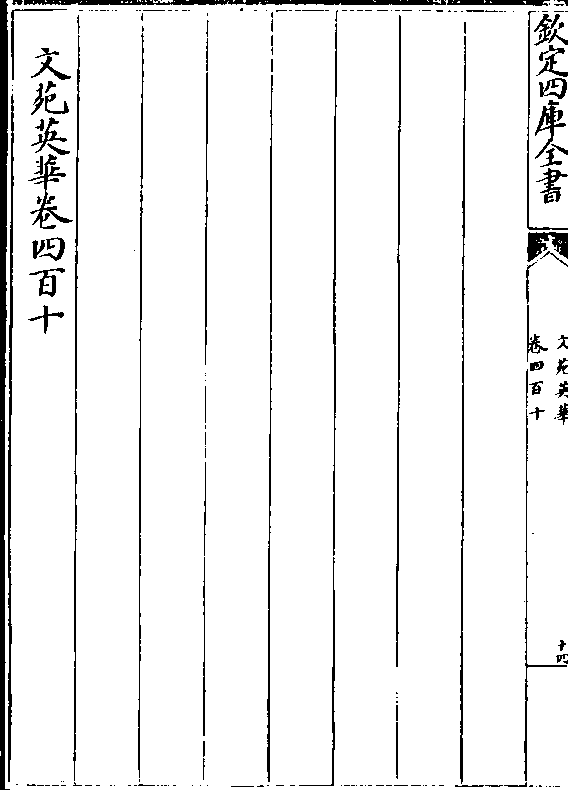 欽定四庫全書
文苑英華
卷四百十
十四
文苑英華卷四百十